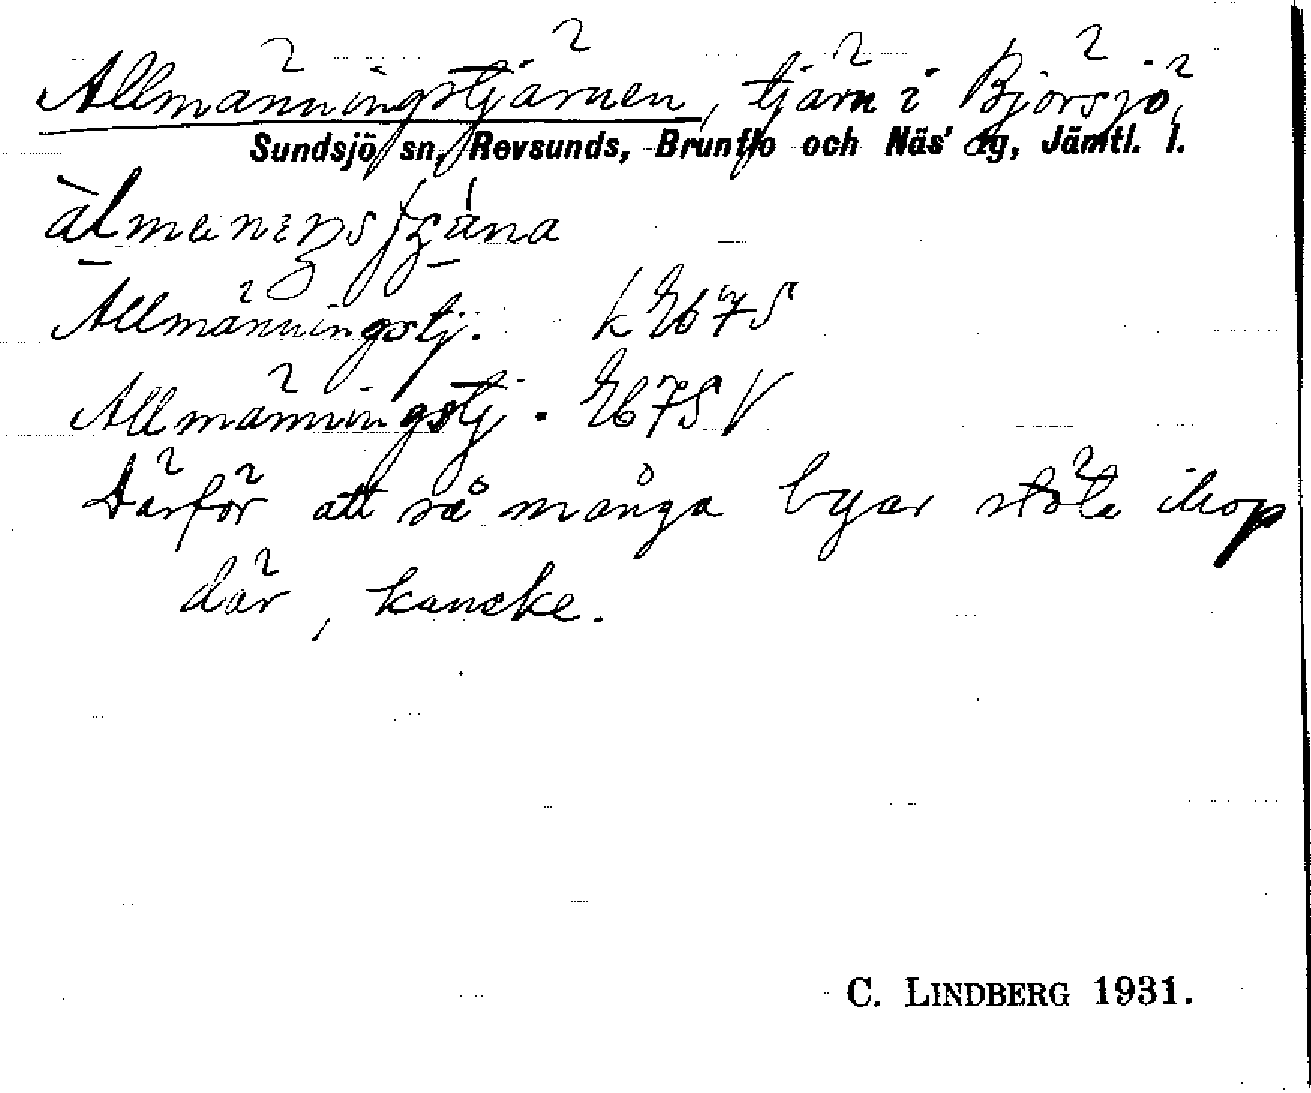 Allmänningstjärnen, tjärn i Björsjö,
Sundsjö sn, Revsunds, Brunflo och Näs' tg, Jämtl. l.
Allmänningstj.
Allmänningstj.
Därför att så många byar stöta ihop
där, kanske.
C. LINDBERG 1931.